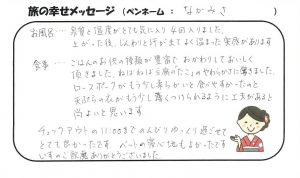 旅の幸せメッセージ（ペンネーム：なかみさ）
お風呂…泉質と温度がとても気に入り4回入りました。
上がった後、じんわりと汗が出てよく温まった実感があります
食事…ごはんのお供の種類が豊富でおかわりしておいしく
頂きました。ねりわは豆腐のたこ のやわらかさに驚きました。
ローストポークがもう少し柔らかいと食べやすかったのと
天ぷらの衣がもう少し薄くつけられるように工夫があると
尚よいと思います
チェックアウトの11:00までのんびりゆっくり過ごせて
とても良かったです ベットの寝心地もよかったです
いすのご配慮ありがとうございました